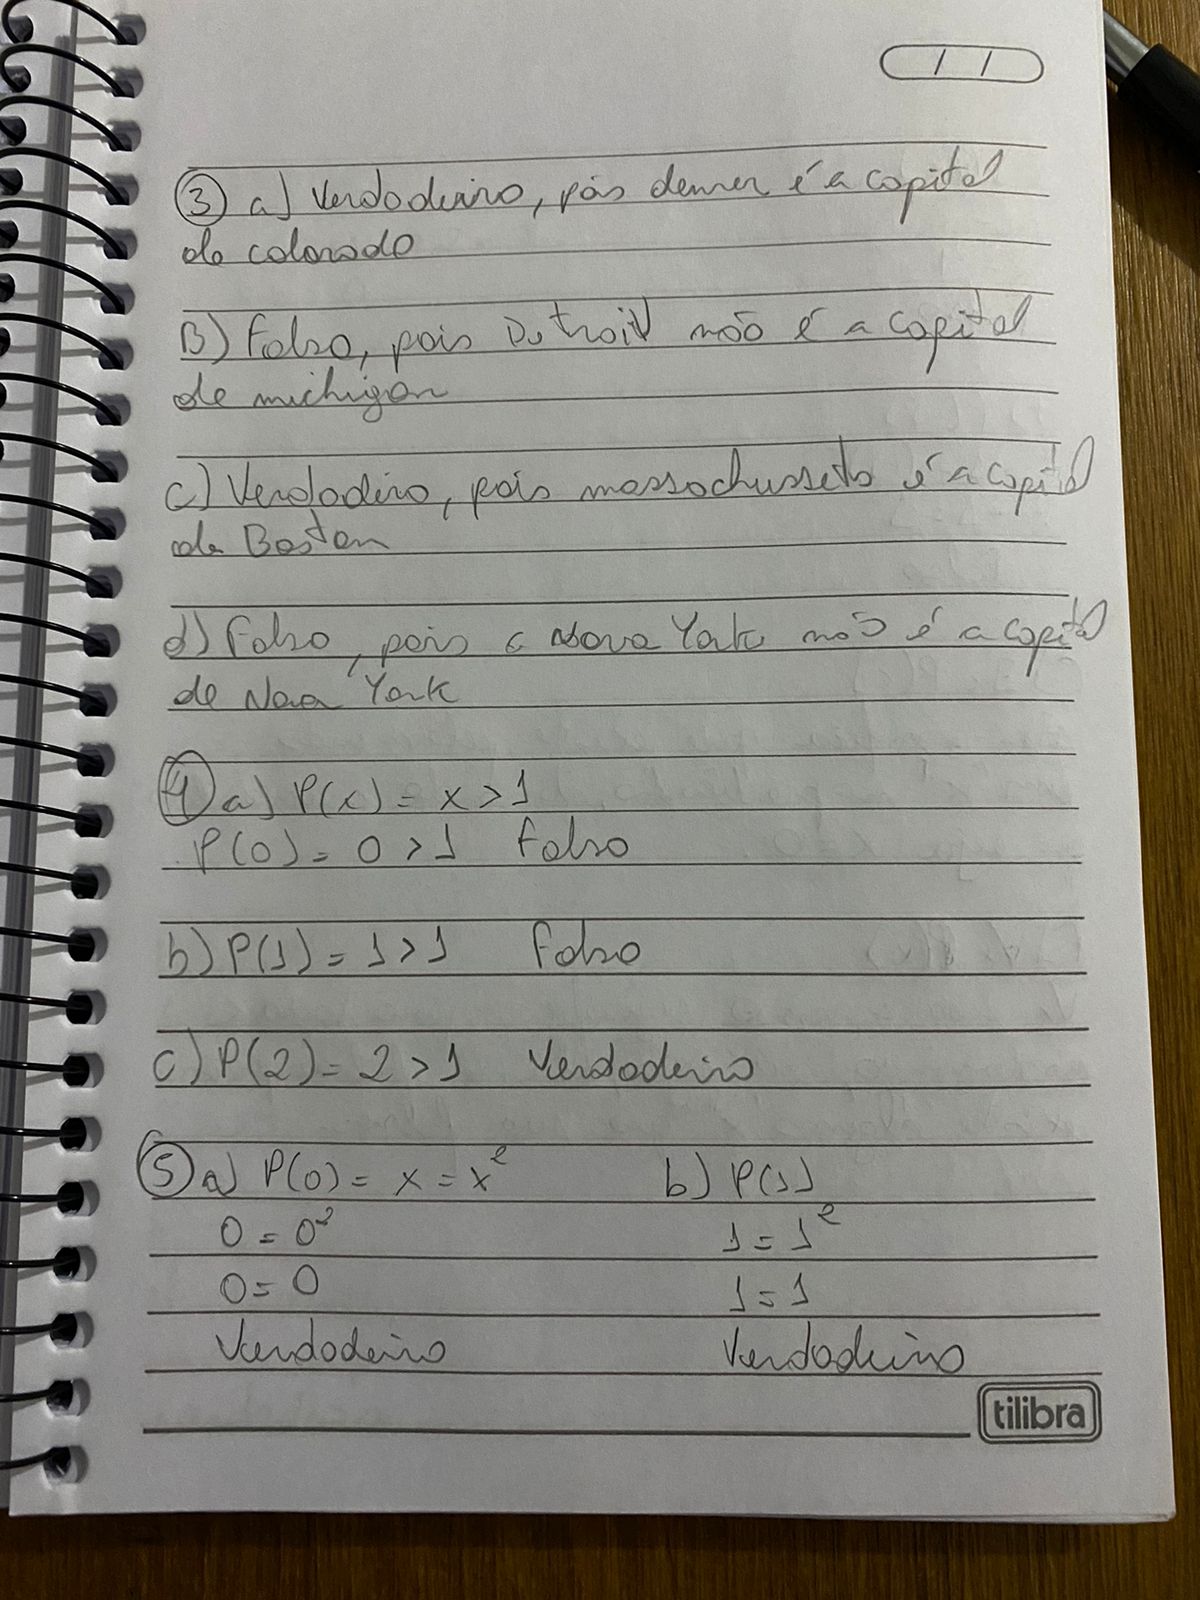 / /
3 a) Verdadeiro, pois denver é a capital
do colorado
B) Falso, pois Detroit não é a capital
de michigan
c) Verdadeiro, pois massachussets é a capital
de Boston
d) Falso, pois a Nova York não é a capital
de Nova York
4 a) P(x) = x > 1
P(0) = 0 > 1 Falso
b) P(1) = 1 > 1 Falso
c) P(2) = 2 > 1 Verdadeiro
5 a) P(0) = x = x² b) P(1)
0 = 0² 1 = 1²
0 = 0 1 = 1
Verdadeiro Verdadeiro
tilibra